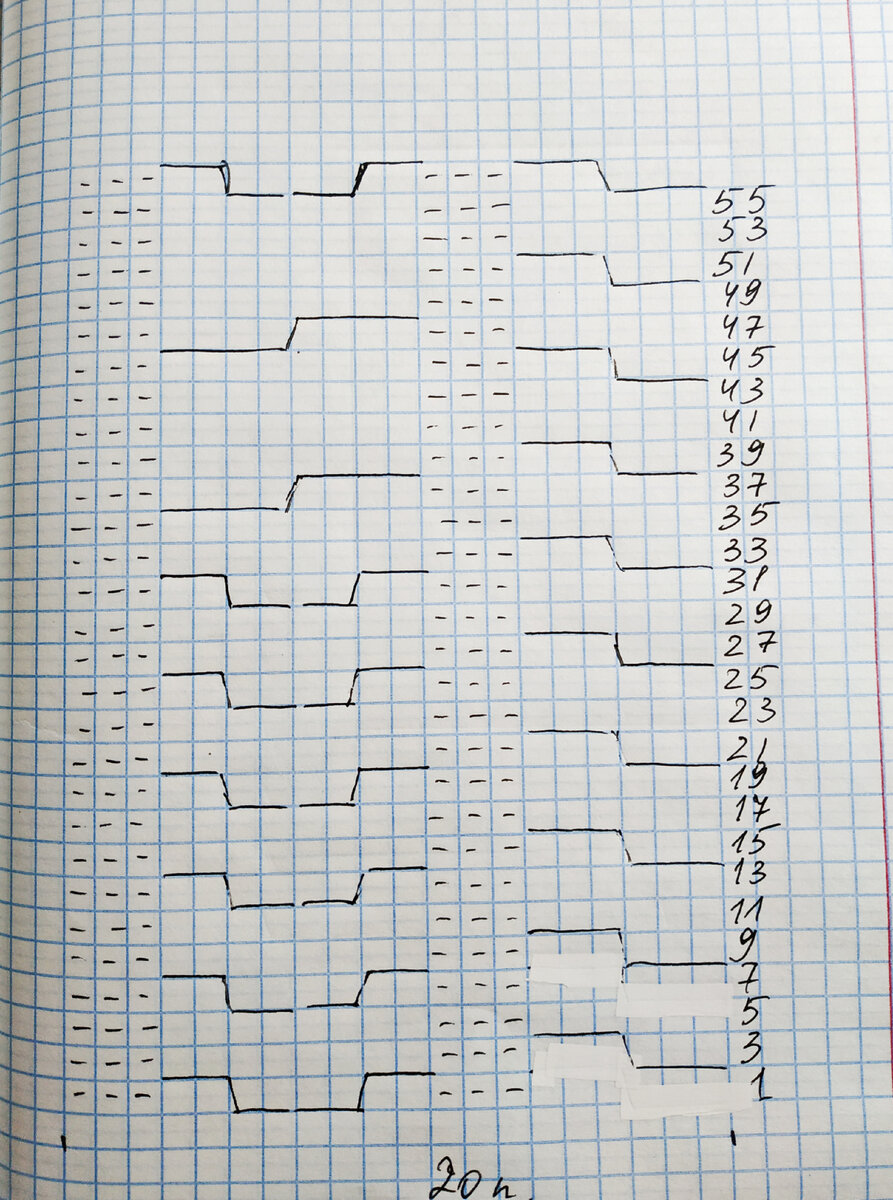 55
53
51
49
47
45
43
41
39
37
35
33
31
29
27
25
23
21
19
17
15
13
11
9
7
5
3
1
20 п.